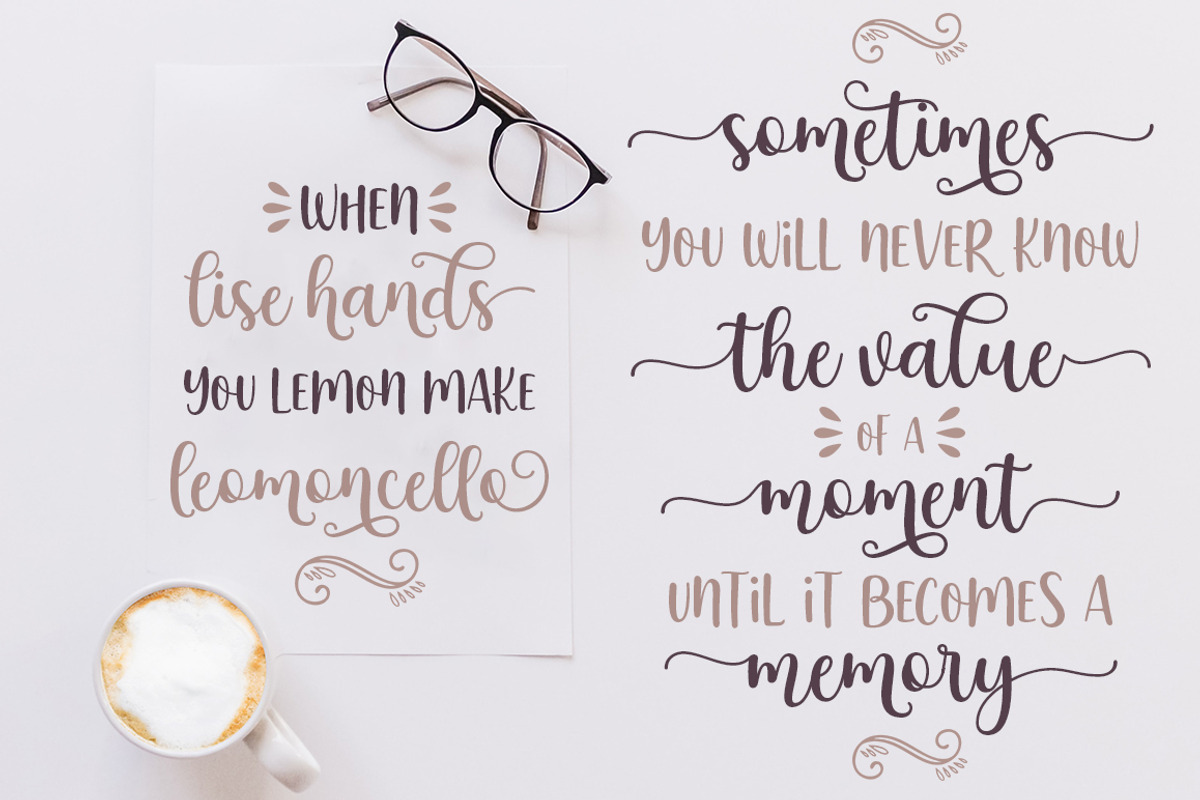 WHEN
lise hands
you LEMON MAKE
leomoncello
sometimes
you WiLL NEVER KNOW
the value
OF A
moment
UNTiL iT BECOMES A
memory